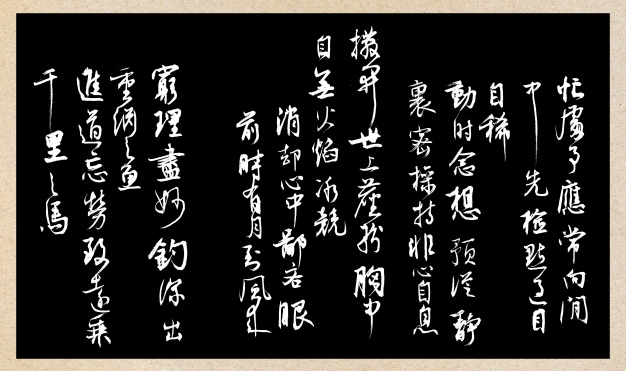 忙處事應常向閒
中先檢點過目
自稀
動時念想預從靜
裏密操持非心自息
撥開世上塵氛胸中
自無火焰冰兢
消却心中鄙吝眼
前時有月到風來
窮理盡妙鈎深出
重淵之魚
進道忘勞致遠乘
千里之馬